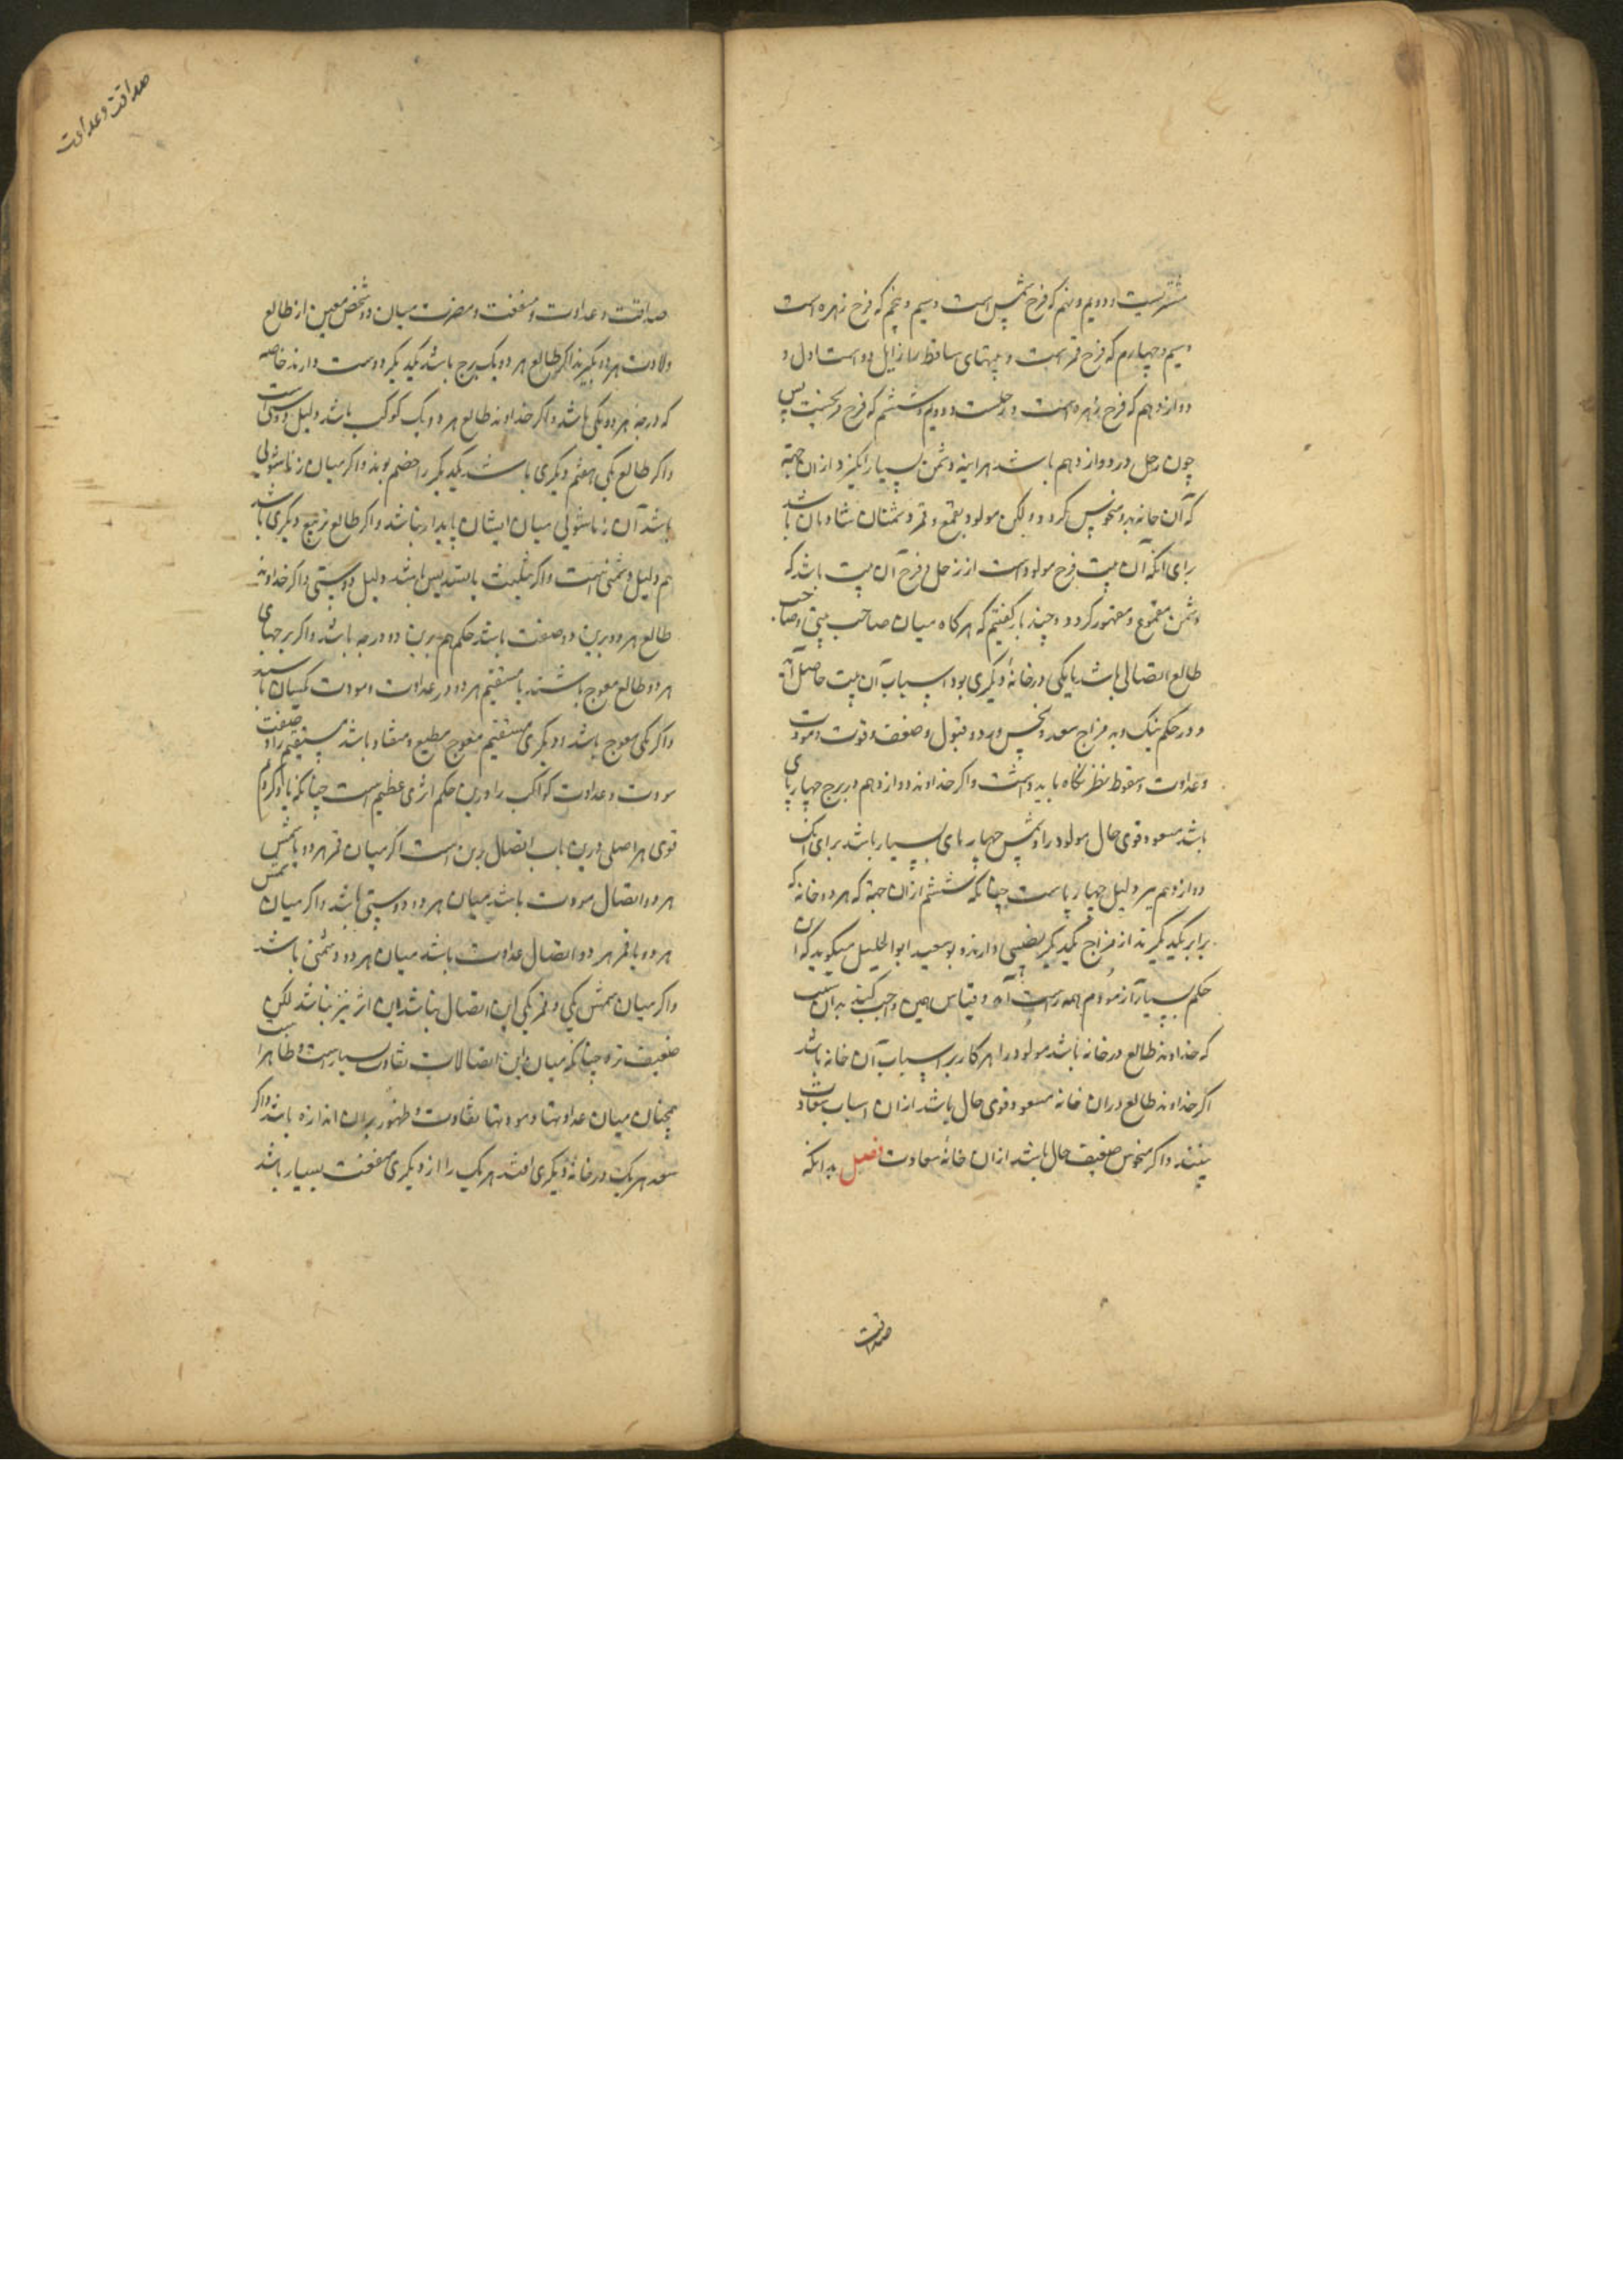 مشتریست و دویم و نهم که فرح شمس است و سیم و پنجم که فرح زهره است
و سیم و چهارم که فرح قمر است و بیتهای ساقط را زایل دو است اول و
دوازدهم که فرح زهره است و زحلست و دویم و ششم که فرح مریخست پس
چون زحل در دوازدهم باشد هر اینه دشمن بسیار انگیزد از ان جهة
که آن خانه بدو منحوس گردد ولکن مولود بقمع و قهر دشمنان شادمان باشد
برای انکه آن بیت فرح مولود است از زحل و فرح آن بیت باشد که
دشمن مقموع و مقهور گردد و چند بار گفتیم که هرگاه میان صاحب بیتی و صاحب
طالع اتصالی باشد یا یکی در خانهٔ دیگری بود اسباب آن بیت حاصل آید
و در حکم نیک و بد مزاج سعد و نحس و رد و قبول و ضعف و قوت و مودت
و عداوت و سقوط نظر نگاه باید داشت و اگر خداوند دوازدهم در برج چهارپای
باشد مسعود و قوی حال مولود را اسپ و چهارپای بسیار باشد برای انک
دوازدهم نیز دلیل چهارپاست چنانکه ششم از ان جهة که هر دو خانه که
برابر یکدیگرند از مزاج یکدیگر نصیبی دارند و بو سعید ابو الجلیل میگوید که این
حکم بسیار آزمودم همه راست آمد و قیاس همین واجب کند بدان سبب
که خداوند طالع در خانه باشد مولود را هر کار بر اسباب آن خانه باشد
اگر خداوند طالع در ان خانه مسعود و قوی حال باشد از ان اسباب سعادت
بیند و اگر منحوس ضعیف حال باشد از ان خانه سعادت فصل بدانکه
صداقت
صداقت و عداوت
صداقت و عداوت و منفعت و مضرت میان دو شخص معین از طالع
ولادت هر دو بگیرند اگر طالع هر دو یک برج باشد یکدیگر دوست دارند خاصه
که درجه هر دو یکی باشد و اگر خداوند طالع هر دو یک کوکب باشد دلیل دوستی است
و اگر طالع یکی هفتم دیگری باشد یکدیگر را خصم بوند و اگر میان زناشوئی
باشد آن زناشوئی میان ایشان پایدار نباشد و اگر طالع تربیع دیگری باشد
هم دلیل دشمنی است و اگر تثلیث یا تسدیس باشد دلیل دوستی و اگر خداوند
طالع هر دو برین دو صفت باشد حکم هم برین دو درجه باشد و اگر برجهای
هر دو طالع معوج باشند یا مستقیم هر دو در عداوت و مودت یکسان باشند
و اگر یکی معوج باشد و دیگری مستقیم معوج مطیع و منقاد باشد مستقیم را و صفت
مودت و عداوت کواکب را درین حکم اثری عظیم است چنانکه یاد کردم
قوی هر اصلی درین باب اتصال برین است اگر میان قمر هر دو یا شمس
هر دو اتصال مودت باشد میان هر دو دوستی باشد و اگر میان شمس
هر دو با قمر هر دو اتصال عداوت باشد میان هر دو دشمنی باشد
و اگر میان شمس یکی و قمر یکی این اتصال نباشد این اثر نیز نباشد لکن
ضعیف تر چنانکه میان این اتصالات تفاوت بسیار است و ظاهر است
همچنان میان عداوتها و مودتها تفاوت و ظهور بران اندازه باشد و اگر
سعد هر یک در خانهٔ دیگری افتد هر یک را از دیگری منفعت بسیار باشد